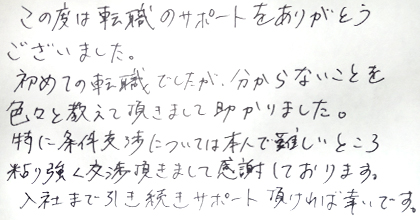 この度は転職のサポートをありがとう
ございました。
初めての転職でしたが、分からないことを
色々と教えて頂きまして助かりました。
特に条件交渉については本人で難しいところ
粘り強く交渉頂きまして感謝しております。
入社まで引き続きサポート頂ければ幸いです。